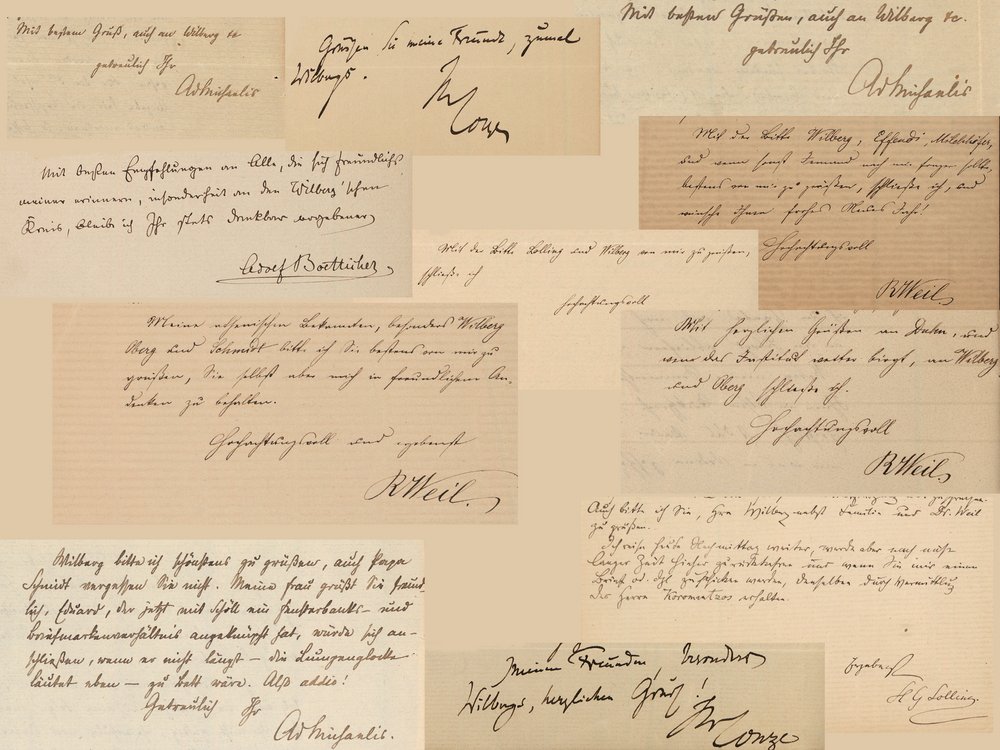 Mit bestem Gruß, auch an Wilberg etc
getreulich Ihr
AdMichaelis
Grüßen Sie meine Freunde, zumal
Wilbergs.
Ihr
Conze
Mit besten Grüßen, auch an Wilberg etc.
getreulich Ihr
AdMichaelis
Mit besten Empfehlungen an Alle, die sich freundlichst
meiner erinnern, insonderheit an den Wilberg'schen
Kreis, bleibe ich Ihr stets dankbar ergebener
Adolf Boetticher
Mit der Bitte Wilberg, Effendi, Milchhöfer,
und wenn sonst Jemand nach mir fragen sollte,
bestens von mir zu grüßen, schließe ich, und
wünsche Ihnen frohes Neues Jahr!
Hochachtungsvoll
RWeil
Mit der Bitte Lolling und Wilberg von mir zu grüßen,
schließe ich
hochachtungsvoll
Meine athenischen Bekannten, besonders Wilberg
Oberg und Schmidt bitte ich Sie bestens von mir zu
grüßen, Sie selbst aber mich in freundlichem An-
denken zu behalten.
Hochachtungsvoll und ergebenst
RWeil.
Mit herzlichen Grüßen an Duhn, und
wen das Institut weiter birgt, an Wilberg
und Oberg schließe ich.
Hochachtungsvoll
RWeil
Auch bitte ich Sie, Hrn Wilberg nebst Familie und Dr. Weil
zu grüßen.
Ich reise heute Nachmittag weiter, werde aber nach nicht
langer Zeit hieher zurückkehren und wenn Sie mir einen
Brief od. dgl. zuschicken werden, denselben durch Vermittlung
des Herrn Koromantzos erhalten.
Ergebenst
H G Lolling.
Wilberg bitte ich schönstens zu grüßen, auch Papa
Schmidt vergessen Sie nicht. Meine Frau grüßt Sie freund-
lich, Eduard, der jetzt mit Schöll ein Fensterbanks- und
Briefmarkenverhältnis angeknüpft hat, würde sich an-
schließen, wenn er nicht längst – die Lungenglocke
läutet eben – zu Bett wäre. Also addio!
Getreulich Ihr
AdMichaelis.
Meinen Freunden, besonders
Wilbergs, herzlichen Gruß!
Ihr
Conze